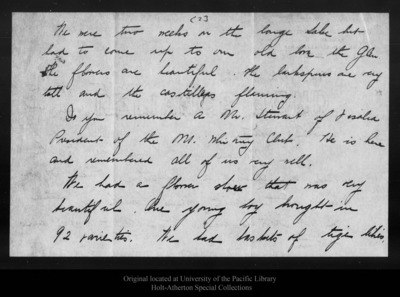 (2)
We were two weeks in the large lake but
had to come up to our old love the Glen
The flowers are beautiful. The larkspurs are very
tall and the castillejas flaming.
Do you remember a Mr. Stewart of Visalia
President of the Mt. Whitney Club. He is here
and remembered all of us very well.
We had a flower show that was very
beautiful. One young boy brought in
92 varieties. We had baskets of tiger lilies.
Original located at University of the Pacific Library
Holt-Atherton Special Collections